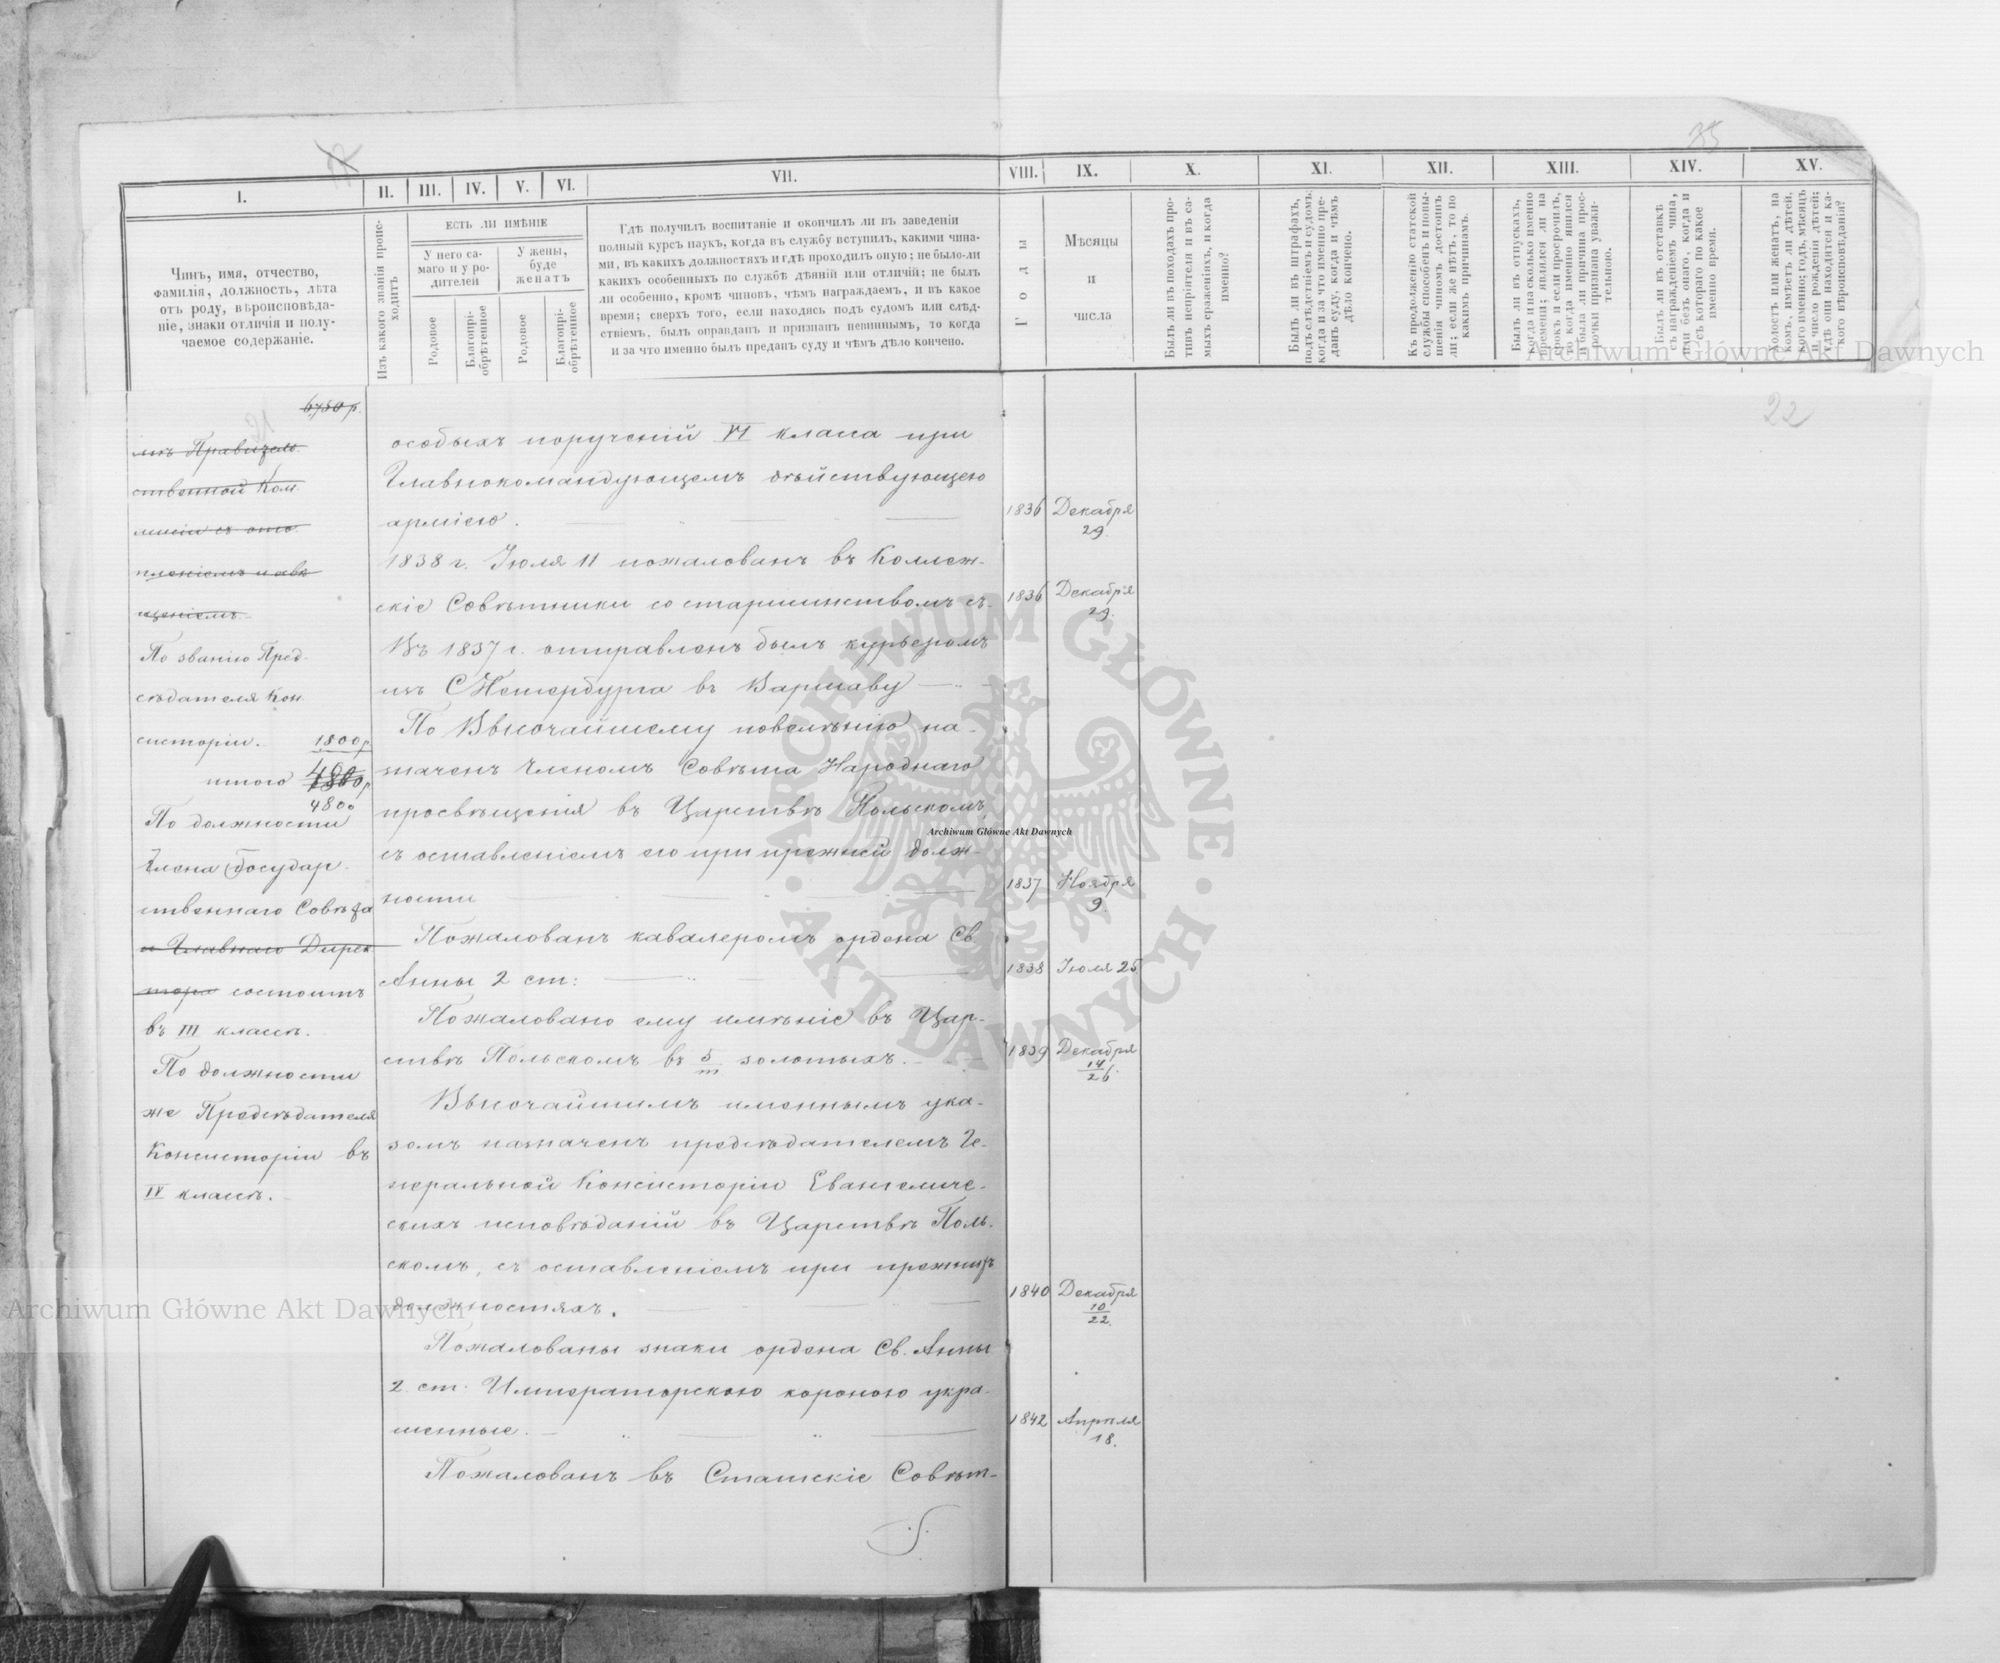 35
I.
II.
III.
IV.
V.
VI.
VII.
VIII.
IX.
X.
XI.
XII.
XIII.
XIV.
XV.
Чинъ, имя, отчество,
фамилія, должность, лѣта
отъ роду, вѣроисповѣда-
ніе, знаки отличія и полу-
чаемое содержаніе.
Изъ какого званія проис-
ходитъ
ЕСТЬ ЛИ ИМѢНІЕ
У него са-
маго и у ро-
дителей
У жены,
буде
женатъ
Родовое
Благопрі-
обрѣтенное
Родовое
Благопрі-
обрѣтенное
Гдѣ получилъ воспитаніе и окончилъ ли въ заведеніи
полный курсъ наукъ, когда въ службу вступилъ, какими чина-
ми, въ какихъ должностяхъ и гдѣ проходилъ оную; не было-ли
какихъ особенныхъ по службѣ дѣяній или отличій; не былъ
ли особенно, кромѣ чиновъ, чѣмъ награждаемъ, и въ какое
время; сверхъ того, если находясь подъ судомъ или слѣд-
ствіемъ, былъ оправданъ и признанъ невиннымъ, то когда
и за что именно былъ преданъ суду и чѣмъ дѣло кончено.
Годы
Мѣсяцы
и
числа
Былъ ли въ походахъ про-
тивъ непріятеля и въ са-
мыхъ сраженіяхъ, и когда
именно?
Былъ ли въ штрафахъ,
подъ слѣдствіемъ и судомъ;
когда и за что именно пре-
данъ суду, когда и чѣмъ
дѣло кончено.
Къ продолженію статской
службы способенъ и повы-
шенія чиномъ достоинъ
ли; если же нѣтъ, то по
какимъ причинамъ.
Былъ ли въ отпускахъ,
когда и насколько именно
времени; явился ли на
срокъ и если просрочилъ,
то когда именно явился
и была ли причина прос-
рочки признана уважи-
тельною.
Былъ ли въ отставкѣ
съ награжденіемъ чина,
или безъ онаго, когда и
съ котораго по какое
именно время.
Холостъ или женатъ, на
комъ, имѣетъ ли дѣтей,
кого именно; годъ, мѣсяцъ
и число рожденія дѣтей;
гдѣ они находятся и ка-
кого вѣроисповѣданія?
Archiwum Główne Akt Dawnych
22
6750 р.
Правитель
ственной Ком
миссіи съ ото
пленіемъ и осв
щеніемъ.
По званію Пред-
сѣдателя Кон-
систоріи. 1800 р.
итого
4800
По должности
Члена Государ-
ственнаго Совѣта
и Главнаго Дирек
тора состоитъ
въ III классѣ.
По должности
же Предсѣдателя
Консисторіи въ
IV классѣ.
особыхъ порученій VI класса при
Главнокомандующемъ дѣйствующею
арміею.
1836 Декабря
29.
1838 г. Іюля 11 пожалованъ въ Коллеж-
скіе Совѣтники со старшинствомъ съ
1836 Декабря
29.
Въ 1837 г. отправленъ былъ курьеромъ
изъ С Петербурга въ Варшаву
По Высочайшему повелѣнію на-
значенъ Членомъ Совѣта Народнаго
просвѣщенія въ Царствѣ Польскомъ,
съ оставленіемъ его при прежней долж-
ности
1837 Ноября
9.
Пожалованъ кавалеромъ ордена Св
Анны 2 ст:
1838 Іюля 25
Пожаловано ему имѣніе въ Цар-
ствѣ Польскомъ въ 5/m золотыхъ.
1839 Декабря
14/26.
Высочайшимъ именнымъ ука-
зомъ назначенъ предсѣдателемъ Ге-
неральной Консисторіи Евангеличе-
скихъ исповѣданій въ Царствѣ Поль-
скомъ, съ оставленіемъ при прежнихъ
должностяхъ.
1840 Декабря
10/22.
Пожалованы знаки ордена Св. Анны
2 ст. Императорскою короною укра-
шенные.
1842 Апрѣля
18.
Пожалованъ въ Статскіе Совѣт-
ARCHIWUM GŁÓWNE AKT DAWNYCH
Archiwum Główne Akt Dawnych
Archiwum Główne Akt Dawnych